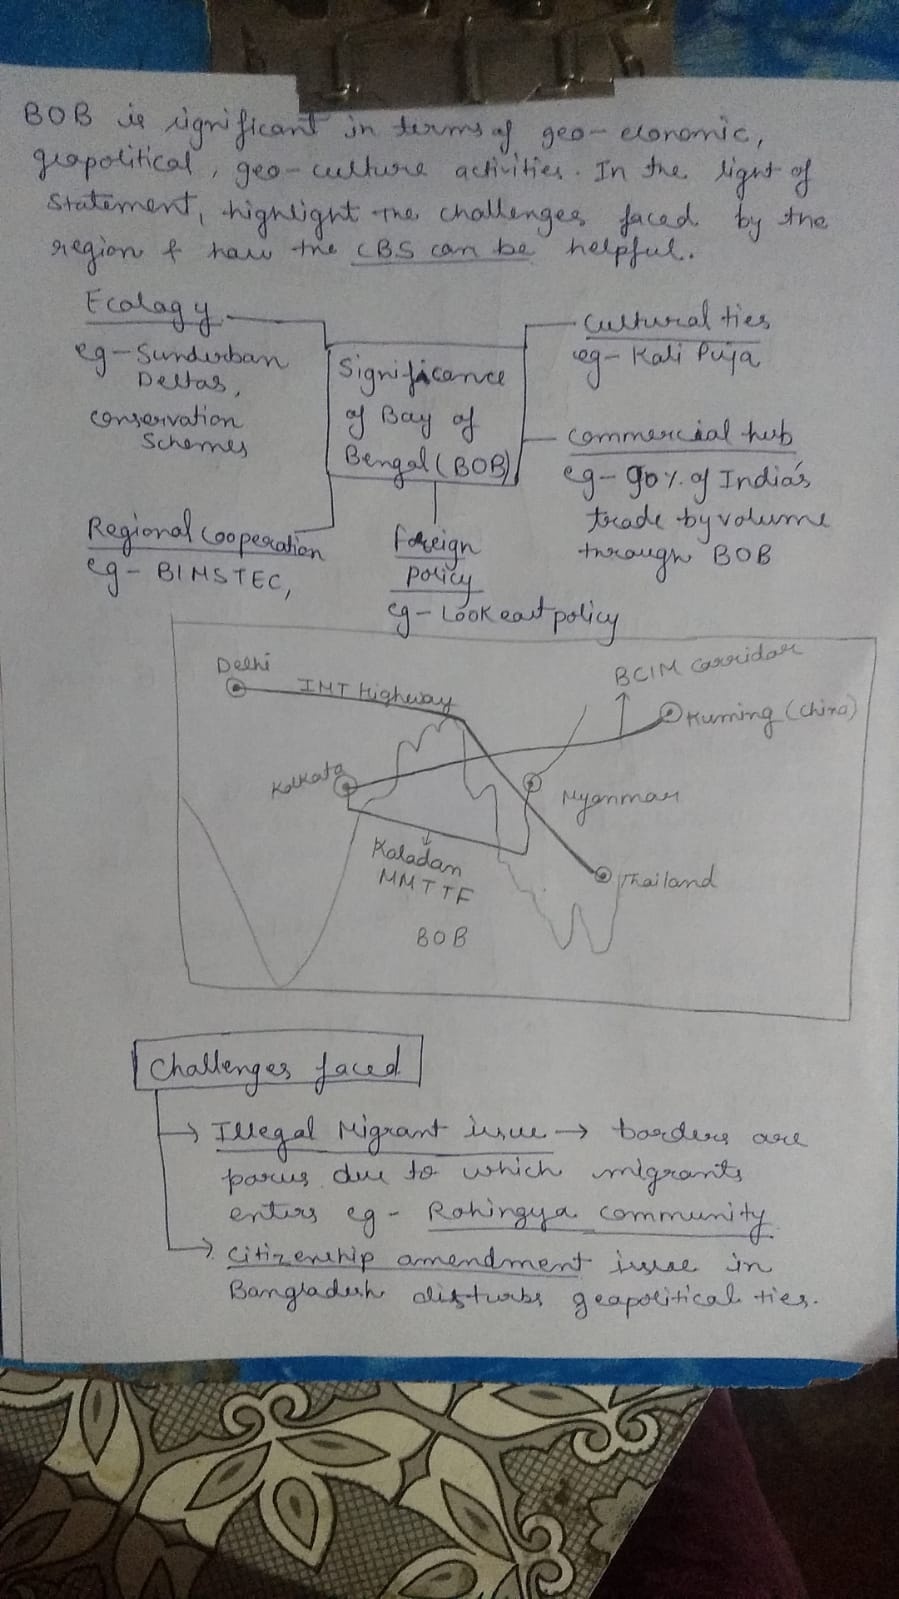 BOB is significant in terms of geo-economic,
geopolitical, geo-culture activities. In the light of
statement, highlight the challenges faced by the
region & how the CBS can be helpful.
Ecology
eg - Sunderban
Deltas,
conservation
Schemes
Significance
of Bay of
Bengal (BOB)
Cultural ties
eg - Kali Puja
commercial hub
eg - 90% of India's
trade by volume
through BOB
Regional cooperation
eg - BIMSTEC,
foreign
policy
eg - Look east policy
Delhi
IMT Highway
BCIM Corridor
Kuming (China)
Kolkata
Myanmar
Kaladan
MMTTF
Thailand
BOB
Challenges faced
→ Illegal Migrant issue → borders are
porus due to which migrants
enters eg - Rohingya community
→ Citizenship amendment issue in
Bangladesh disturbs geopolitical ties.